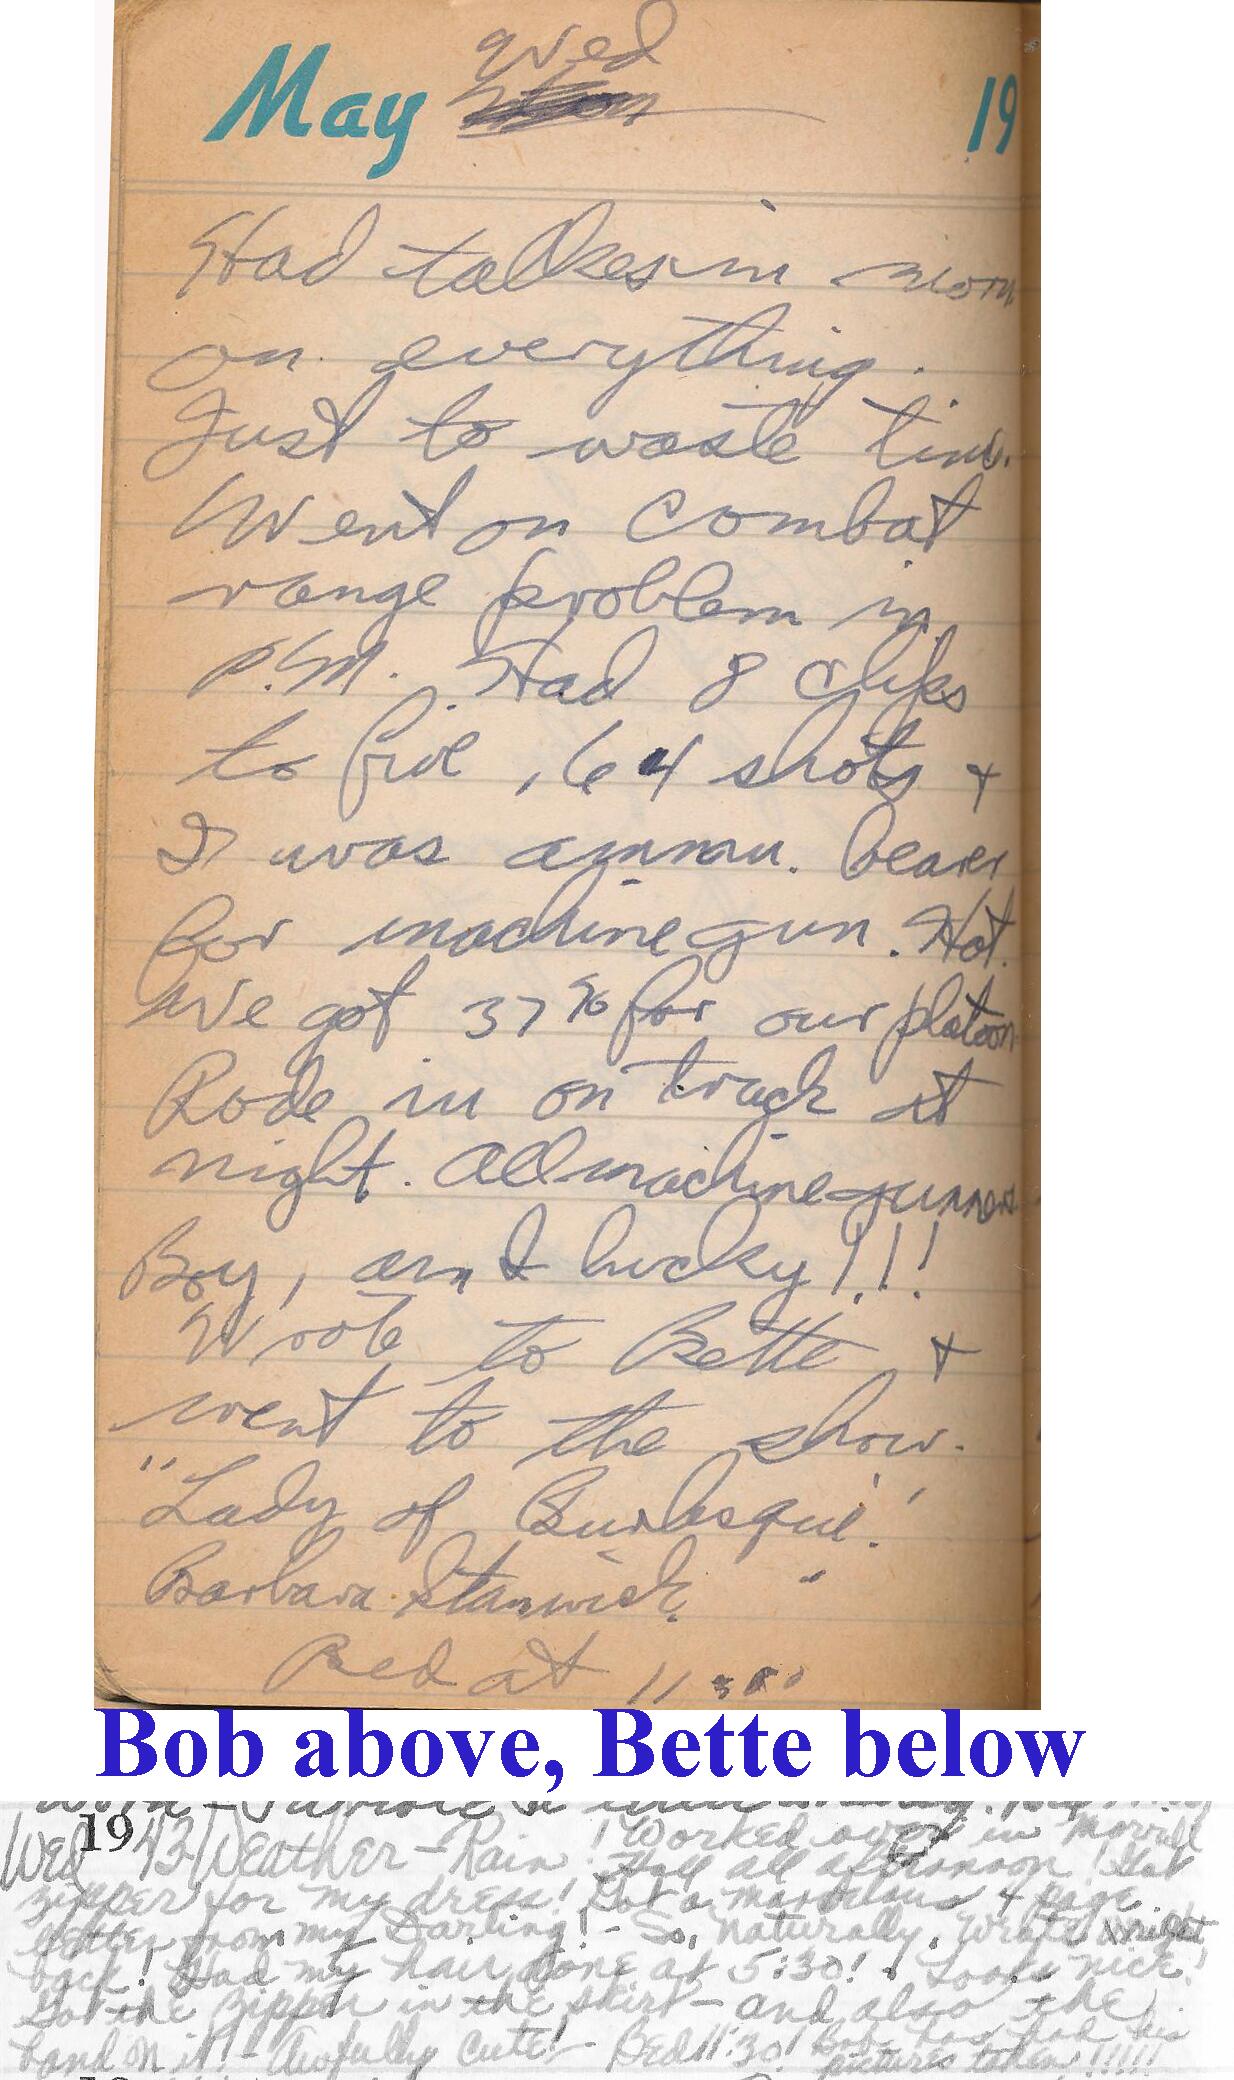 May Wed 19
Had talkes in morn
on everything.
Just to waste time.
Went on combat
range problem in
P.M. Had 8 clips
to fire, 64 shots +
I was ammu. bearer
for machine gun. Hot.
We got 37% for our platoon
Rode in on track at
night. All machine gunners
Boy, am I lucky!!!
Wrote to Bette +
went to the show.
"Lady of Burlesque."
Barbara Stanwick.
Bed at 11:00
Bob above, Bette below
19
Wed '43 Weather - Rain! Worked over in Morrill
Hall all afternoon! Got
zipper for my dress! Got a marvelous 4 page
letter from my Darling! - So, naturally, wrote wright
back! Had my hair done at 5:30! Looks nice!
Got the zipper in the skirt - and also the
band on it! - Awfully cute! - Bed 11:30! Bob has had his
pictures taken!!!!!